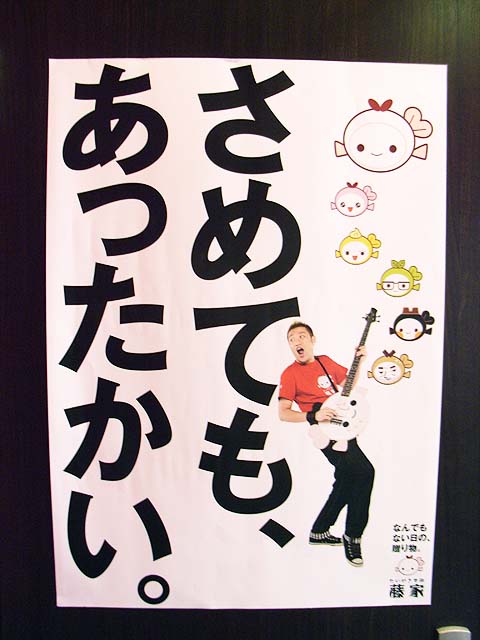 さめても、
あったかい。
なんでも
ない日の、
贈り物。
藤家